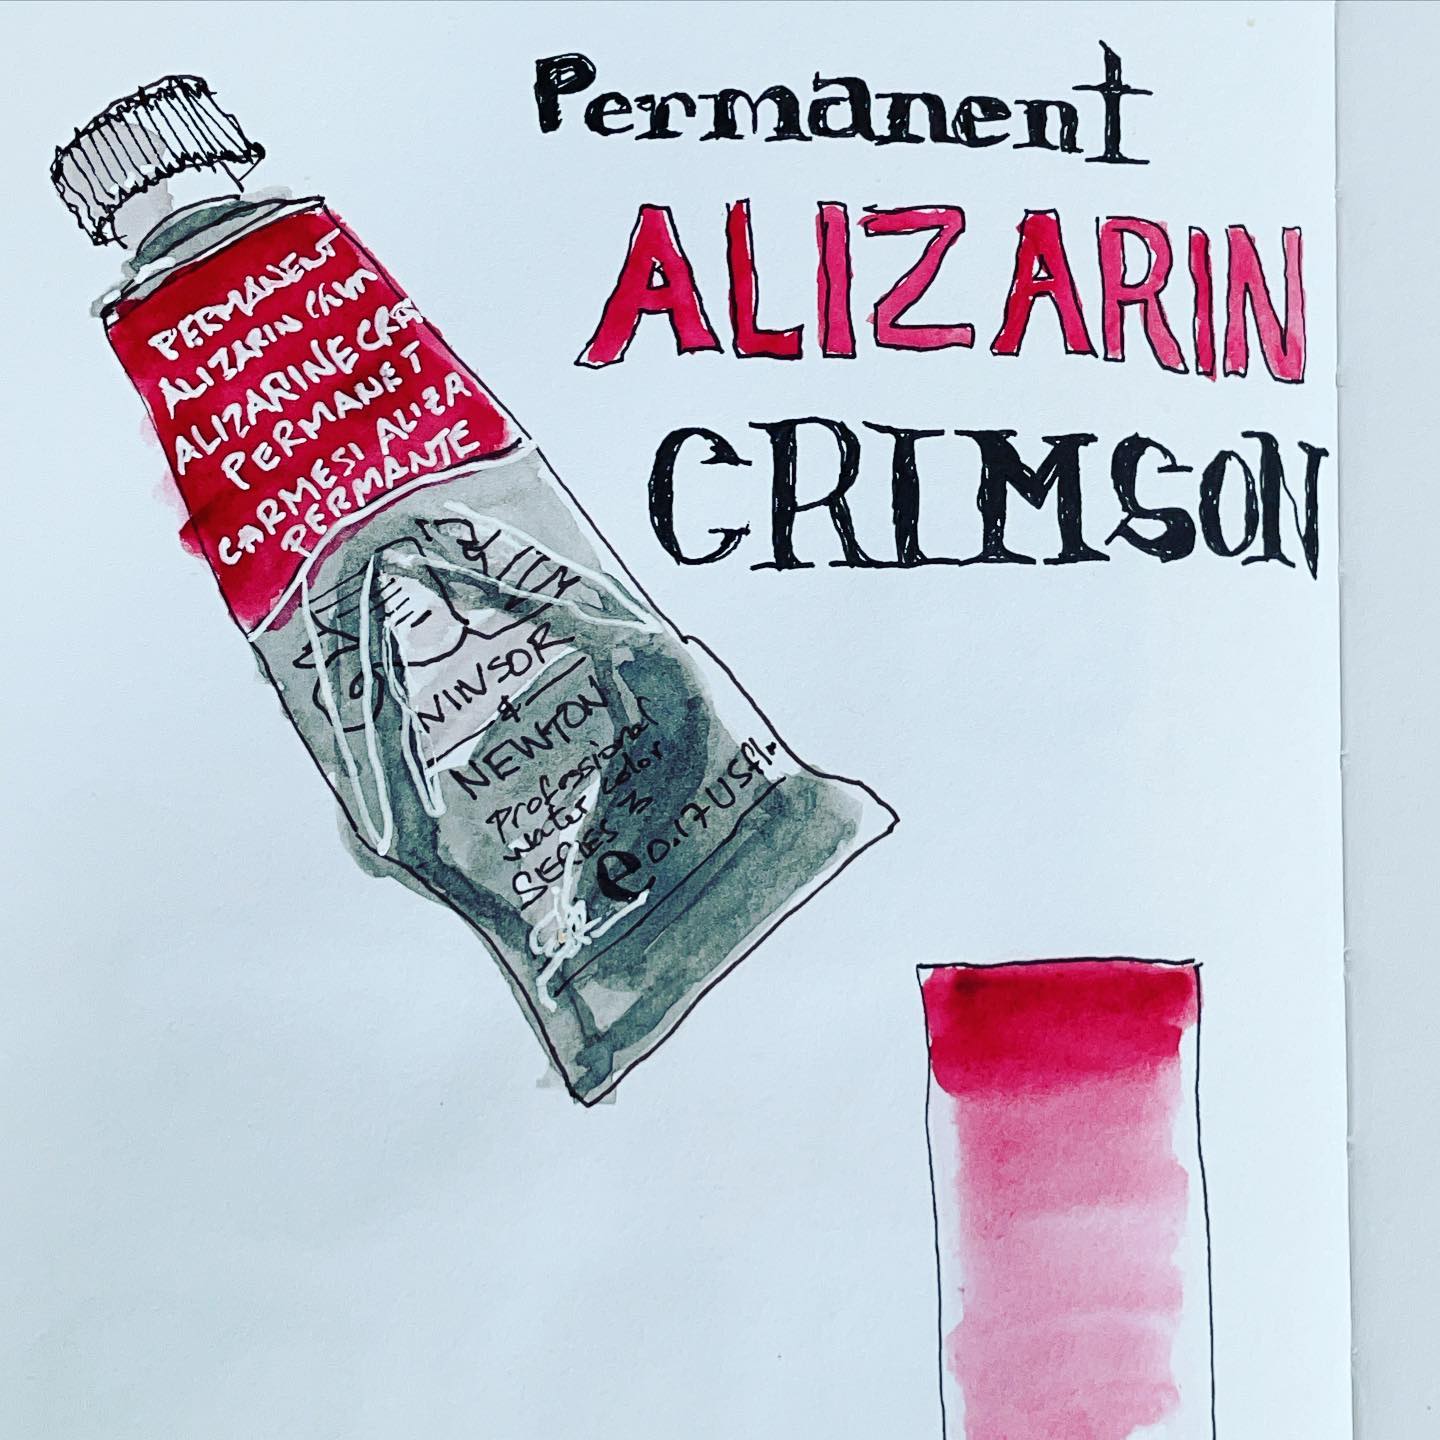 Permanent
ALIZARIN
CRIMSON
PERMANENT
ALIZARIN Crim
ALIZARINE CRA
PERMANET
CARMESI ALIZA
PERMANTE
WINSOR
&
NEWTON
professional
water color
SERIES 3
e 0.17 US fl